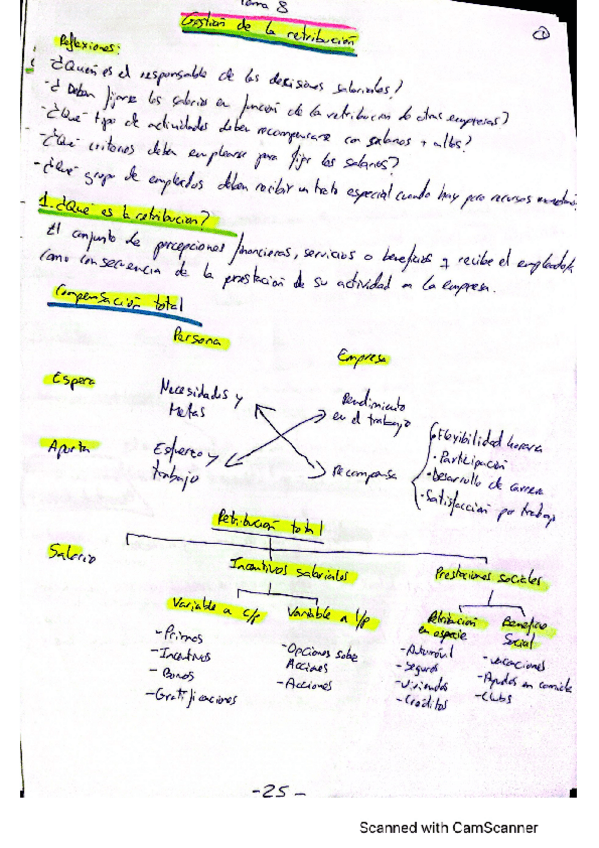 Tema 8
Gestión de la retribución
1
Reflexiones:
¿Quién es el responsable de las decisiones salariales?
-¿Deben fijarse los salarios en función de la retribución de otras empresas?
-¿Qué tipo de actividades deben recompensarse con salarios + altos?
-¿Qué criterios deben emplearse para fijar los salarios?
-¿Qué grupo de empleados deben recibir un trato especial cuando hay pero recursos
1. ¿Qué es la retribución?
El conjunto de percepciones financieras, servicios o beneficios q recibe el empleado
como consecuencia de la prestación de su actividad en la empresa.
Compensación total
Persona
Empresa
Espera
Necesidades y
Metas
Rendimiento
en el trabajo
Aporta
Esfuerzo y
trabajo
recompensa
·Flexibilidad horaria
·Participación
·Desarrollo de carrera
·Satisfacción por trabajo
Retribución total
Salario
Incentivos salariales
Prestaciones sociales
Variable a c/p
Variable a l/p
Retribución
en especie
Beneficio
Social
-Primas
-Incentivos
-Bonos
-Gratificaciones
-Opciones sobe
Acciones
-Acciones
-Automóvil
-Seguros
-Viviendas
-Créditos
-vacaciones
-Ayudas en comida
-Clubs
-25-
Scanned with CamScanner